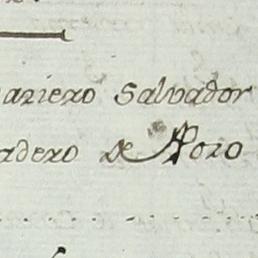 ariero Salvador
rdero de Aporo